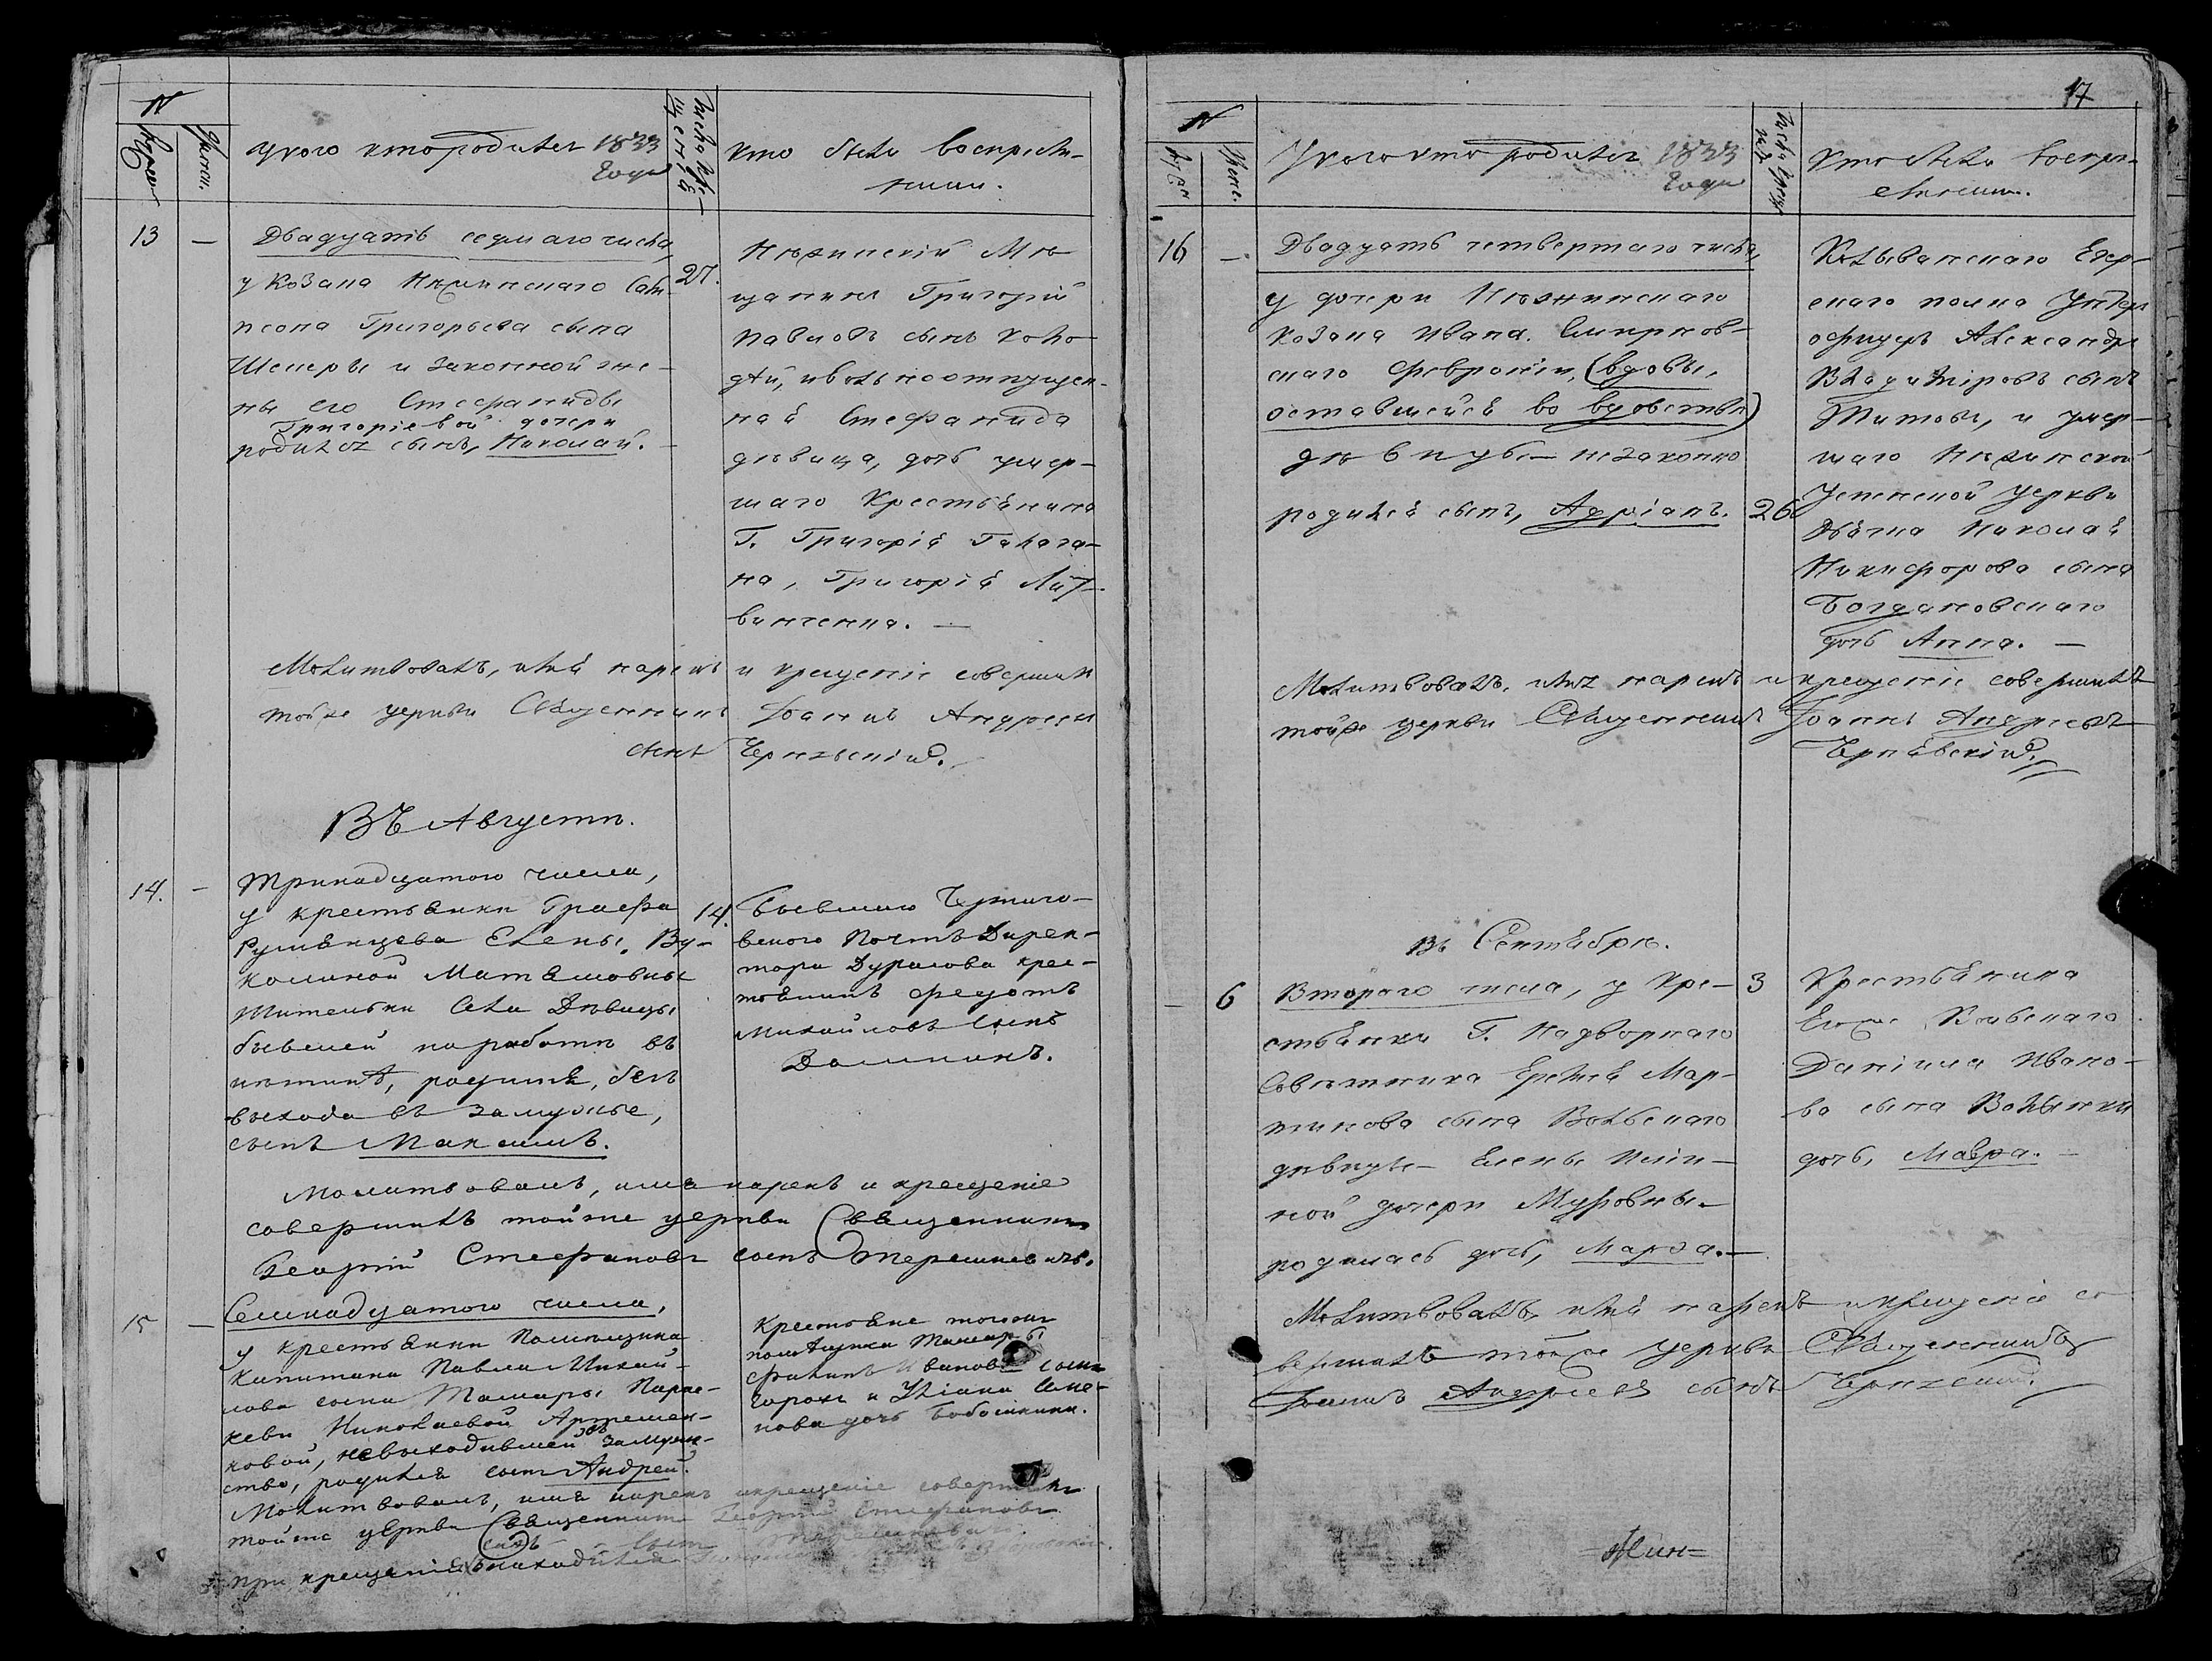 N
Мужск.
Женск.
У кого кто родился 1833
года
Число Кре-
щенія
Кто были воспріем-
ники.
13 —
Двадцать седмаго числа,
у Козака Нѣжинскаго Сам-
псона Григорьева сына
Шеперы и законной же-
ны его Стефаниды
Григоріевой дочери
родился сынъ, Николай. —
27.
Нѣжинскій Мѣ-
щанинъ Григорій
Павловъ сынъ Коло-
дѣй, и вольноотпущен-
ная Стефанида
дѣвица, дочь умер-
шаго Крестьянина
Г. Григорія Галага-
на, Григорія Лит-
винченка. —
Молитвовалъ, имя нарекъ и крещеніе совершилъ
тойже церкви Священникъ Іоаннъ Андреевъ
сынъ Чернявскій.
Въ Августѣ.
14. —
Тринадцатого числа,
у крестьянки Графа
Румянцева Елены
жительки села Дѣвицы
бывшей на работѣ въ
Нѣжинѣ, родился, безъ
выхода въ замужье,
сынъ Максимъ.
14.
Бывшаго Черниго-
вского Почтъ Дирек-
тора Дурасова крес-
тьянинъ Федотъ
Михайловъ сынъ
Молитвовалъ, имя нарекъ и крещеніе
совершилъ тойже церкви Священникъ
Георгій Стефановъ сынъ
15 —
Семнадцатого числа,
у крестьянки Помѣщика
Капитана Павла Михай-
лова сына Тамары Парас-
кевы Николаевой Артемен-
ковой, невыходившей въ замуж-
ство, родился сынъ Андрей.
Крестьяне тогоже
помѣщика Тамары
Филипъ Ивановъ сынъ
Горохъ и Уліана Семе-
нова дочь
Молитвовалъ, имя нарекъ и крещеніе совершилъ
тойже церкви Священникъ Георгій Стефановъ
сынъ
при крещеніи находился
17
N
Мужск.
Женс.
У кого кто родился 1833
года
Число Крещ
Кто были воспрі-
емники.
16 —
Двадцать четвертаго числа,
у дочери Нѣжинскаго
Козака Ивана Смирнов-
скаго Февроніи, (вдовы,
оставшейся во вдовствѣ)
дѣвицы — незаконно
родился сынъ, Адріанъ.
26
Колыванскаго Егер-
скаго полка Унтеръ
офицеръ Александръ
Владиміровъ сынъ
Титовъ, и умер-
шаго Нѣжинской
Успенской Церкви
Дьячка Николая
Никифорова сына
Богдановскаго
дочь Анна. —
Молитвовалъ, имя нарекъ и крещеніе совершилъ
тойже церкви Священникъ Іоаннъ Андреевъ
Чернявскій.
Въ Сентябрѣ.
— 6
Второго числа, у кре-
стьянки Г. Надворнаго
Совѣтника Еремея Мар-
тинова сына Вольскаго
дѣвицы — Елены
ной дочери
родилась дочь, Марфа. —
3
Крестьянина
Егоже Вольскаго
Даніила Ивано-
ва сына
дочь, Мавра. —
Молитвовалъ, имя нарекъ и крещеніе со-
вершилъ тойже Церкви Священникъ
Іоаннъ Андреевъ сынъ Чернявскій.